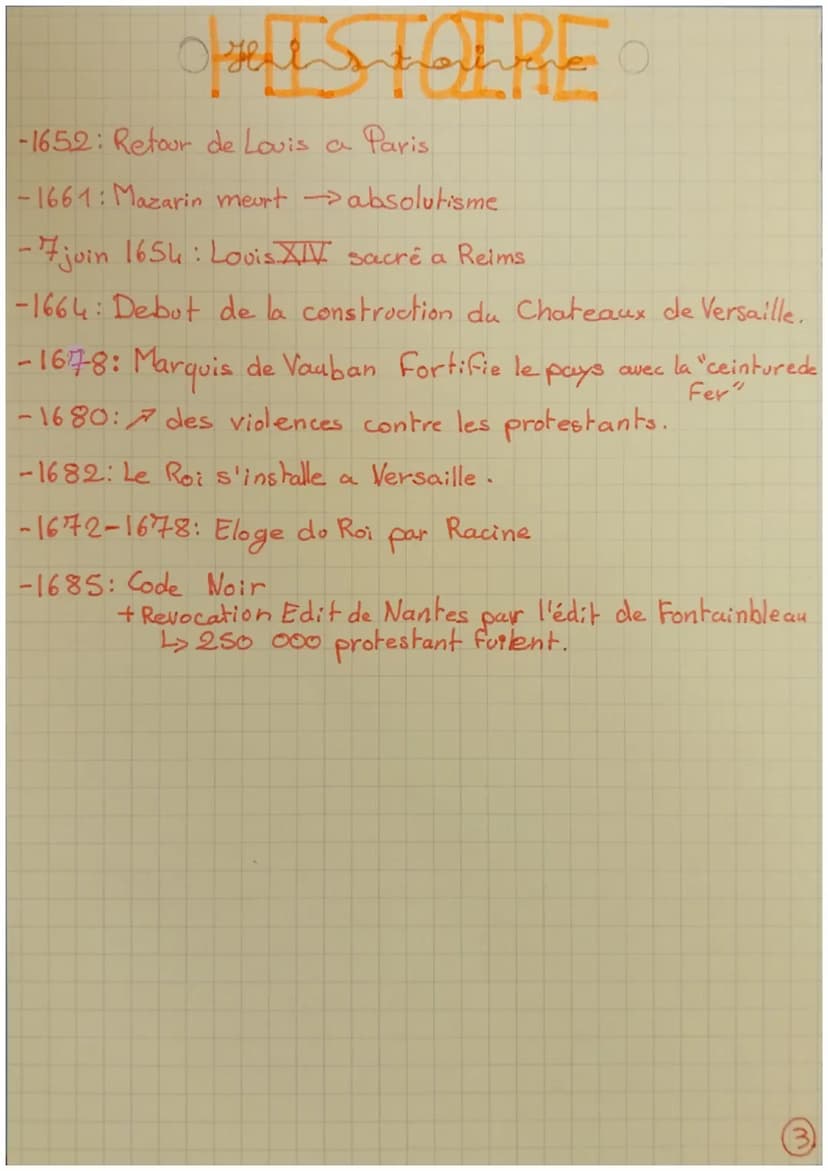 HISTOIRE
Histoire
-1652: Retour de Louis a Paris
-1661: Mazarin meurt → absolutisme
-7 juin 1654: Louis XIV sacré a Reims
-1664: Debut de la construction du Chateaux de Versaille.
-1678: Marquis de Vauban Fortifie le pays avec la "ceinture de
Fer"
-1680: ↗ des violences contre les protestants.
-1682: Le Roi s'installe a Versaille.
-1672-1678: Eloge do Roi par Racine
-1685: Code Noir
+ Revocation Edit de Nantes par l'édit de Fontainbleau
↳ 250 000 protestant fuient.
3